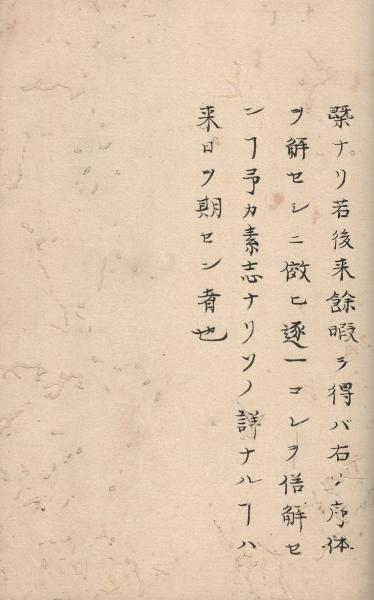 槩ナリ若後来餘暇ヲ得バ右ノ序体
ヲ解セシニ倣ヒ逐一コレヲ信解セ
ンヿ予カ素志ナリソノ詳ナルヿハ
来日ヲ期セン者也